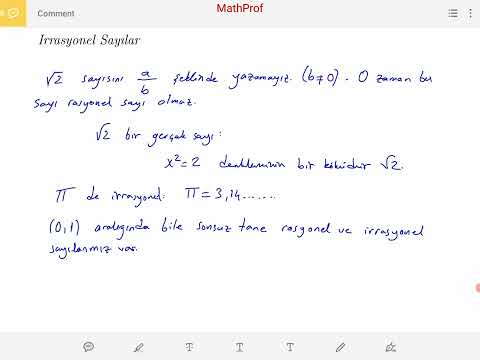 MathProf
Comment
Irrasyonel Sayılar
√2 sayısını a/b şeklinde yazamayız. (b≠0). O zaman bu
sayı rasyonel sayı olmaz.
√2 bir gerçek sayı:
x²=2 denkleminin bir köküdür √2.
π de irrasyonel: π=3,14.......
(0,1) aralığında bile sonsuz tane rasyonel ve irrasyonel
sayılarımız var.
T T T